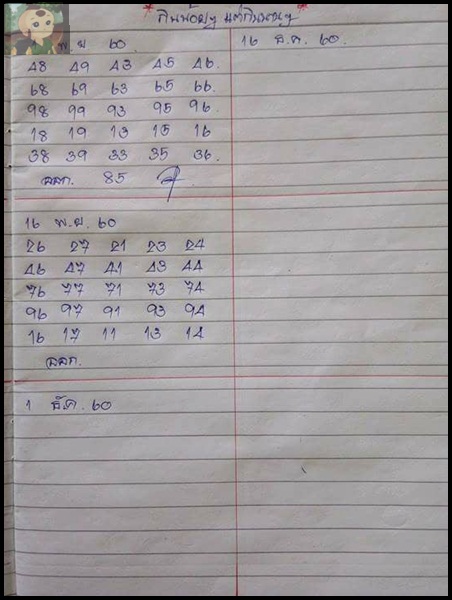 * กินน้อยๆ แต่กินนานๆ *
พ.ย 60.
48 49 43 45 46.
68 69 63 65 66.
98 99 93 95 96.
18 19 13 15 16
38 39 33 35 36.
ออก. 85
16 พ.ย. 60
26 27 21 23 24
46 47 41 43 44
76 77 71 73 74
96 97 91 93 94
16 17 11 13 14
ออก.
1 ธ.ค. 60
16 ธ.ค. 60.